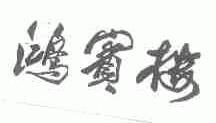 鴻賓樓